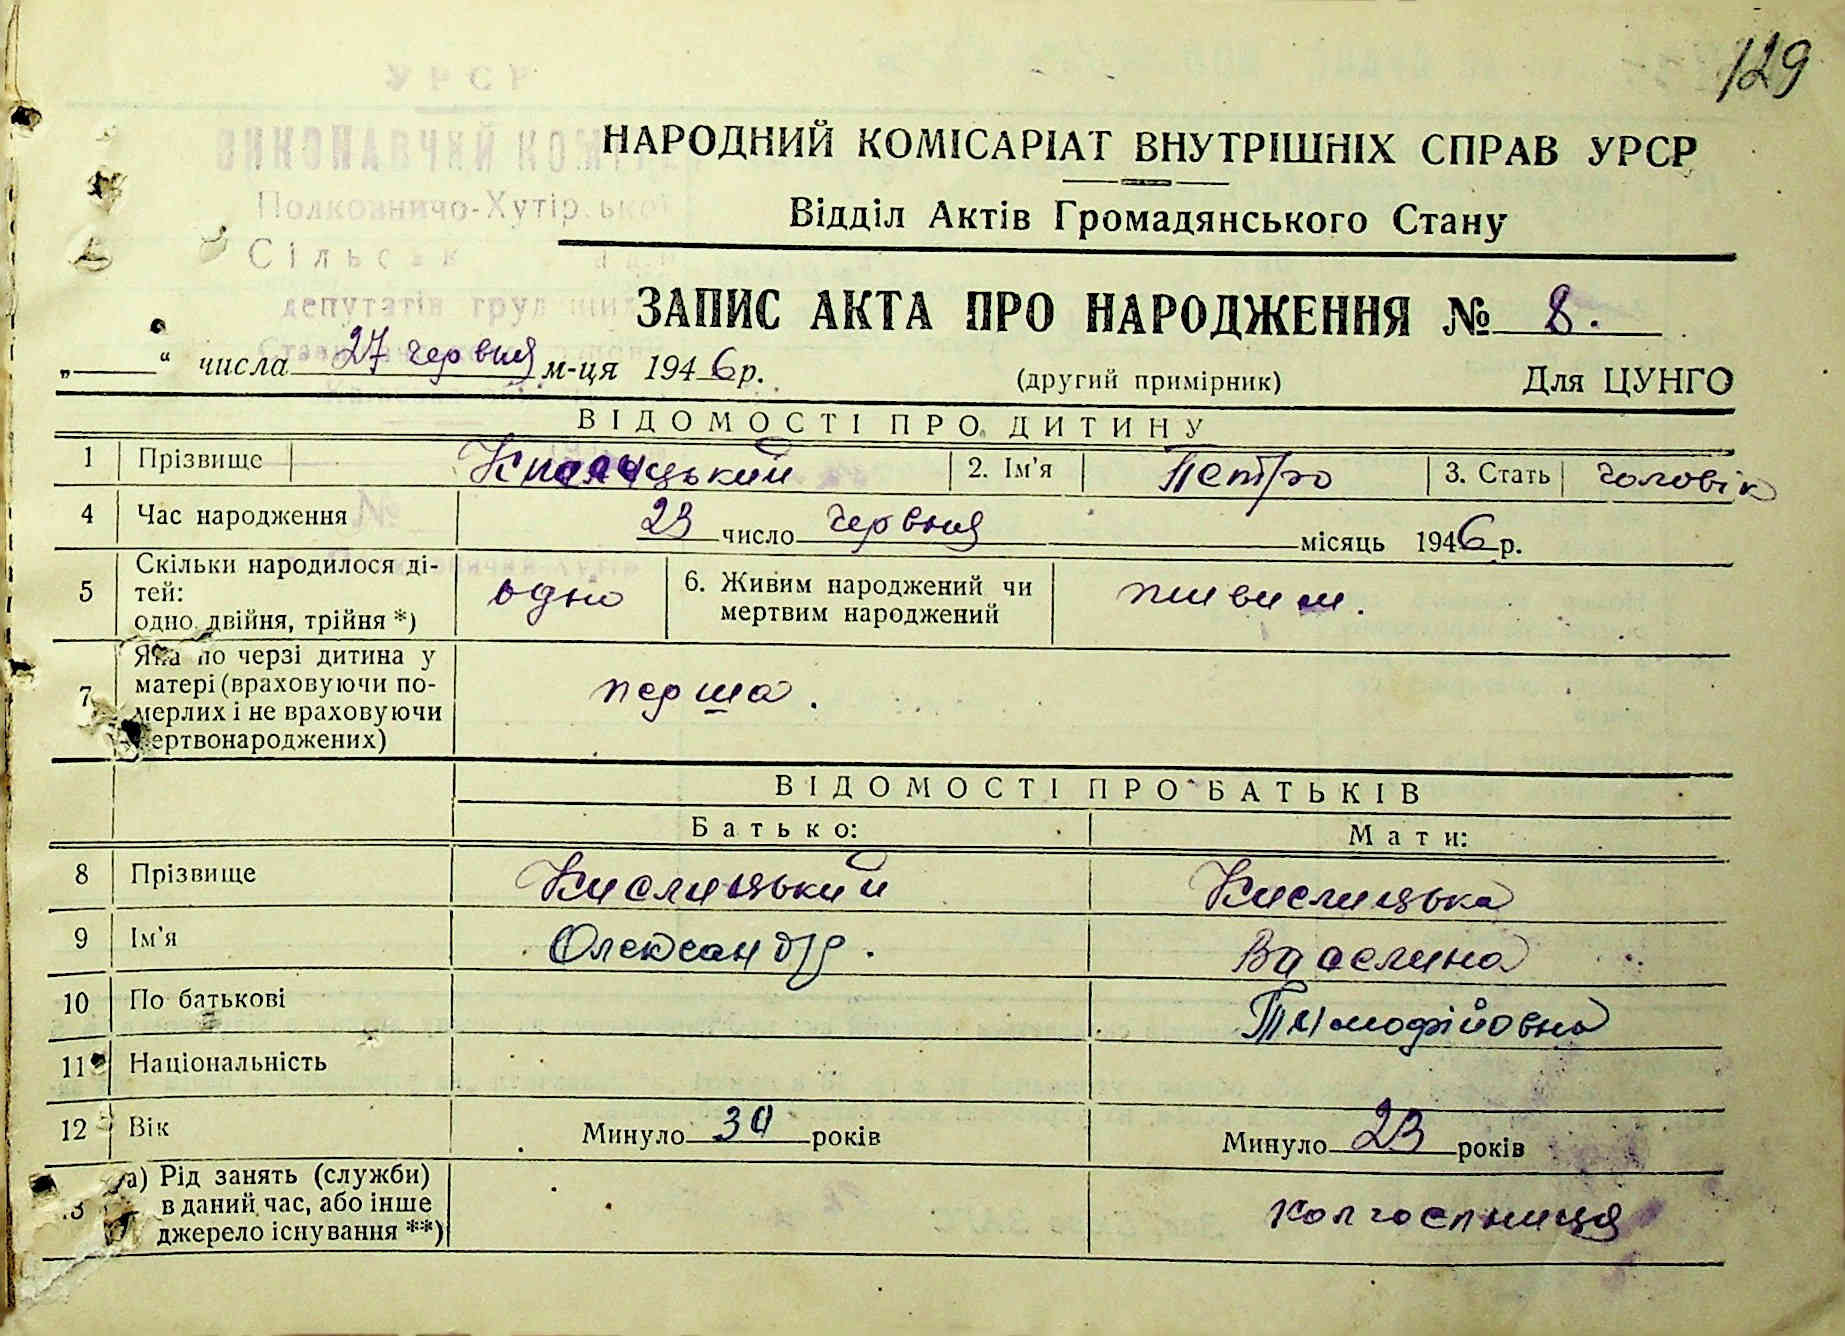 129
УРСР
ВИКОНАВЧИЙ КОМІТЕ
Полковничо-Хутірської
Сільськ
депутатів труд
НАРОДНИЙ КОМІСАРІАТ ВНУТРІШНІХ СПРАВ УРСР
Відділ Актів Громадянського Стану
ЗАПИС АКТА ПРО НАРОДЖЕННЯ № 8.
„ “ числа 27 червня м-ця 1946 р. (другий примірник) Для ЦУНГО
ВІДОМОСТІ ПРО ДИТИНУ
1 Прізвище Кислицький 2. Ім'я Петро 3. Стать чоловік
4 Час народження 23 число червня місяць 1946 р.
5 Скільки народилося ді-
тей:
одно, двійня, трійня *) одно 6. Живим народжений чи
мертвим народжений живим.
7 Яка по черзі дитина у
матері (враховуючи по-
мерлих і не враховуючи
мертвонароджених) перша.
ВІДОМОСТІ ПРО БАТЬКІВ
Батько: Мати:
8 Прізвище Кислицький Кислицька
9 Ім'я Олександр. Васелина
10 По батькові Тимофійовна
11 Національність
12 Вік Минуло 34 років Минуло 23 років
13 а) Рід занять (служби)
в даний час, або інше
джерело існування **) колгоспниця